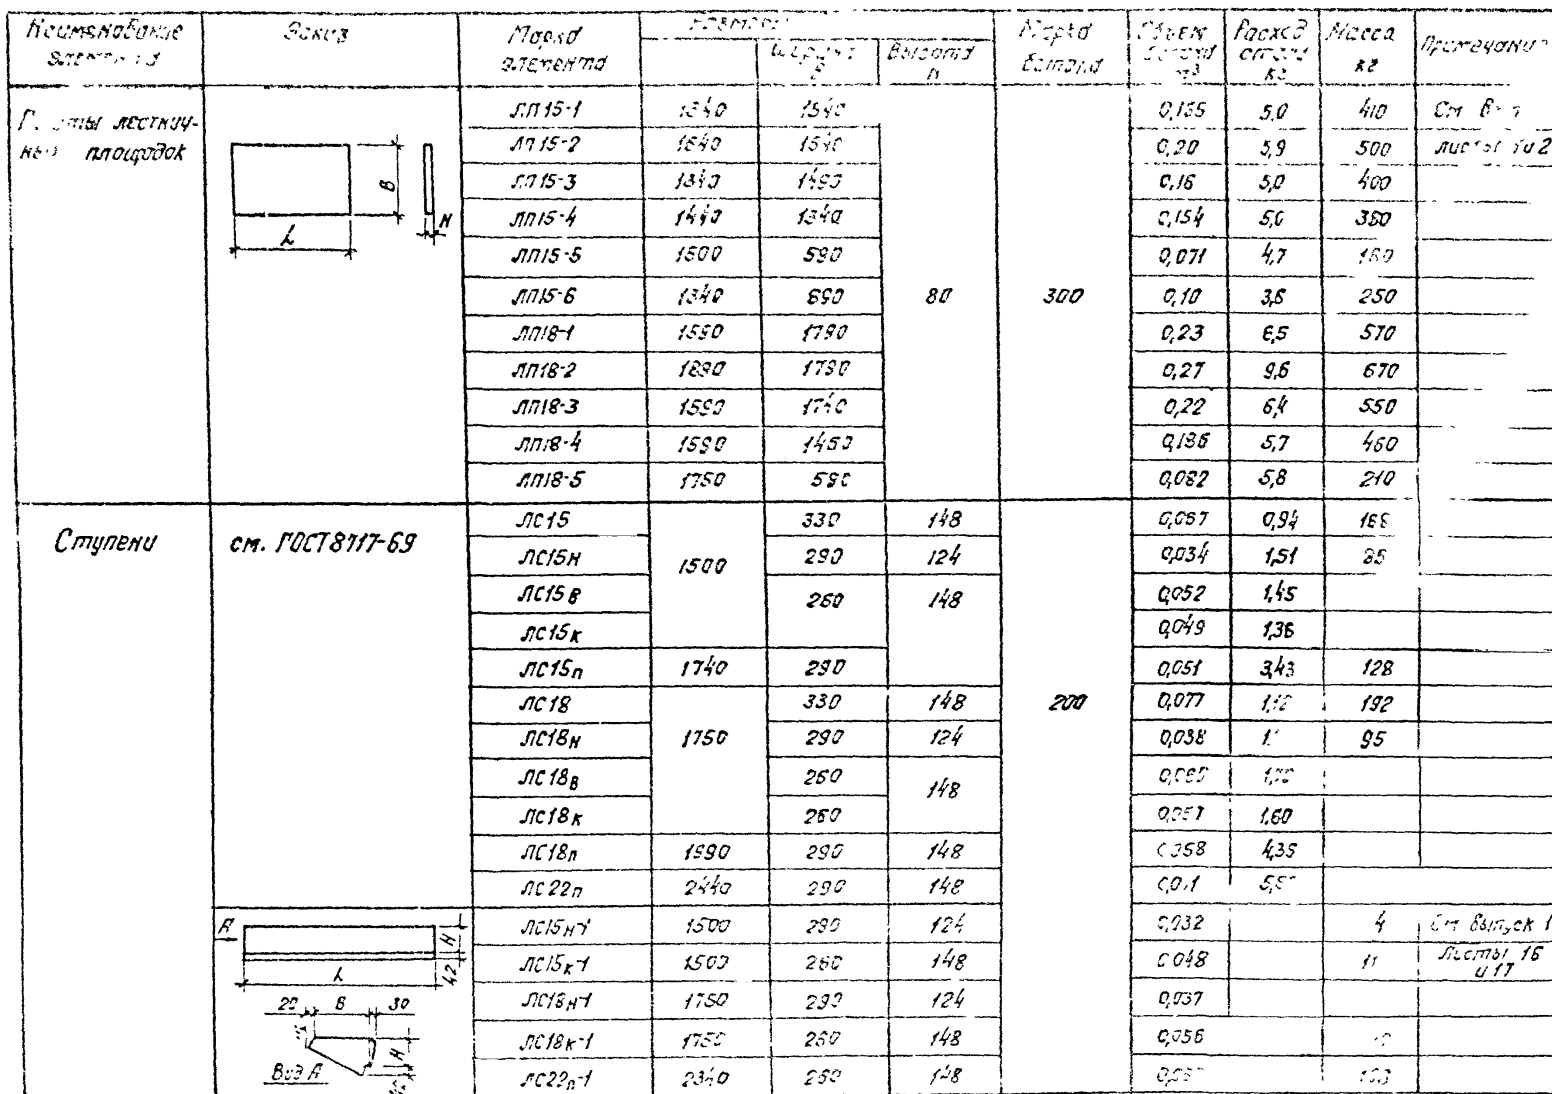 Наименование элемента | Эскиз | Марка элемента | Размеры | Марка бетона | Объем бетона м³ | Расход стали кг | Масса кг | Примечание
Ширина В | Высота Н
лестничных площадок | ЛП15-1 | 1340 | 1540 | 80 | 300 | 0,165 | 5,0 | 410 | См.
ЛП15-2 | 1640 | 1540 | 0,20 | 5,9 | 500 | листы 1и2
ЛП15-3 | 1340 | 1490 | 0,16 | 5,0 | 400
ЛП15-4 | 1440 | 1340 | 0,154 | 5,0 | 380
ЛП15-5 | 1500 | 590 | 0,071 | 4,7 | 180
ЛП15-6 | 1340 | 890 | 0,10 | 3,6 | 250
ЛП18-1 | 1590 | 1790 | 0,23 | 6,5 | 570
ЛП18-2 | 1890 | 1790 | 0,27 | 9,6 | 670
ЛП18-3 | 1590 | 1740 | 0,22 | 6,4 | 550
ЛП18-4 | 1590 | 1450 | 0,186 | 5,7 | 460
ЛП18-5 | 1750 | 590 | 0,082 | 5,8 | 210
В
Н
L
Ступени | см. ГОСТ 8717-69 | ЛС15 | 1500 | 330 | 148 | 200 | 0,067 | 0,94 | 168
ЛС15н | 290 | 124 | 0,034 | 1,51 | 85
ЛС15в | 260 | 148 | 0,052 | 1,45
ЛС15к | 0,049 | 1,36
ЛС15п | 1740 | 290 | 0,051 | 3,43 | 128
ЛС18 | 1750 | 330 | 148 | 0,077 | 1,12 | 192
ЛС18н | 290 | 124 | 0,038 | 95
ЛС18в | 260 | 148
ЛС18к | 260 | 0,057 | 1,60
ЛС18п | 1990 | 290 | 148 | 0,058 | 4,35
ЛС22п | 2440 | 290 | 148
ЛС15н-1 | 1500 | 290 | 124 | 0,032 | См. Выпуск 1
ЛС15к-1 | 1500 | 260 | 148 | 0,048 | Листы 16 и 17
ЛС18н-1 | 1750 | 290 | 124 | 0,037
ЛС18к-1 | 1750 | 260 | 148 | 0,056
ЛС22п-1 | 2340 | 260 | 148
А
Н
42
L
20 В 30
Н
Вид А